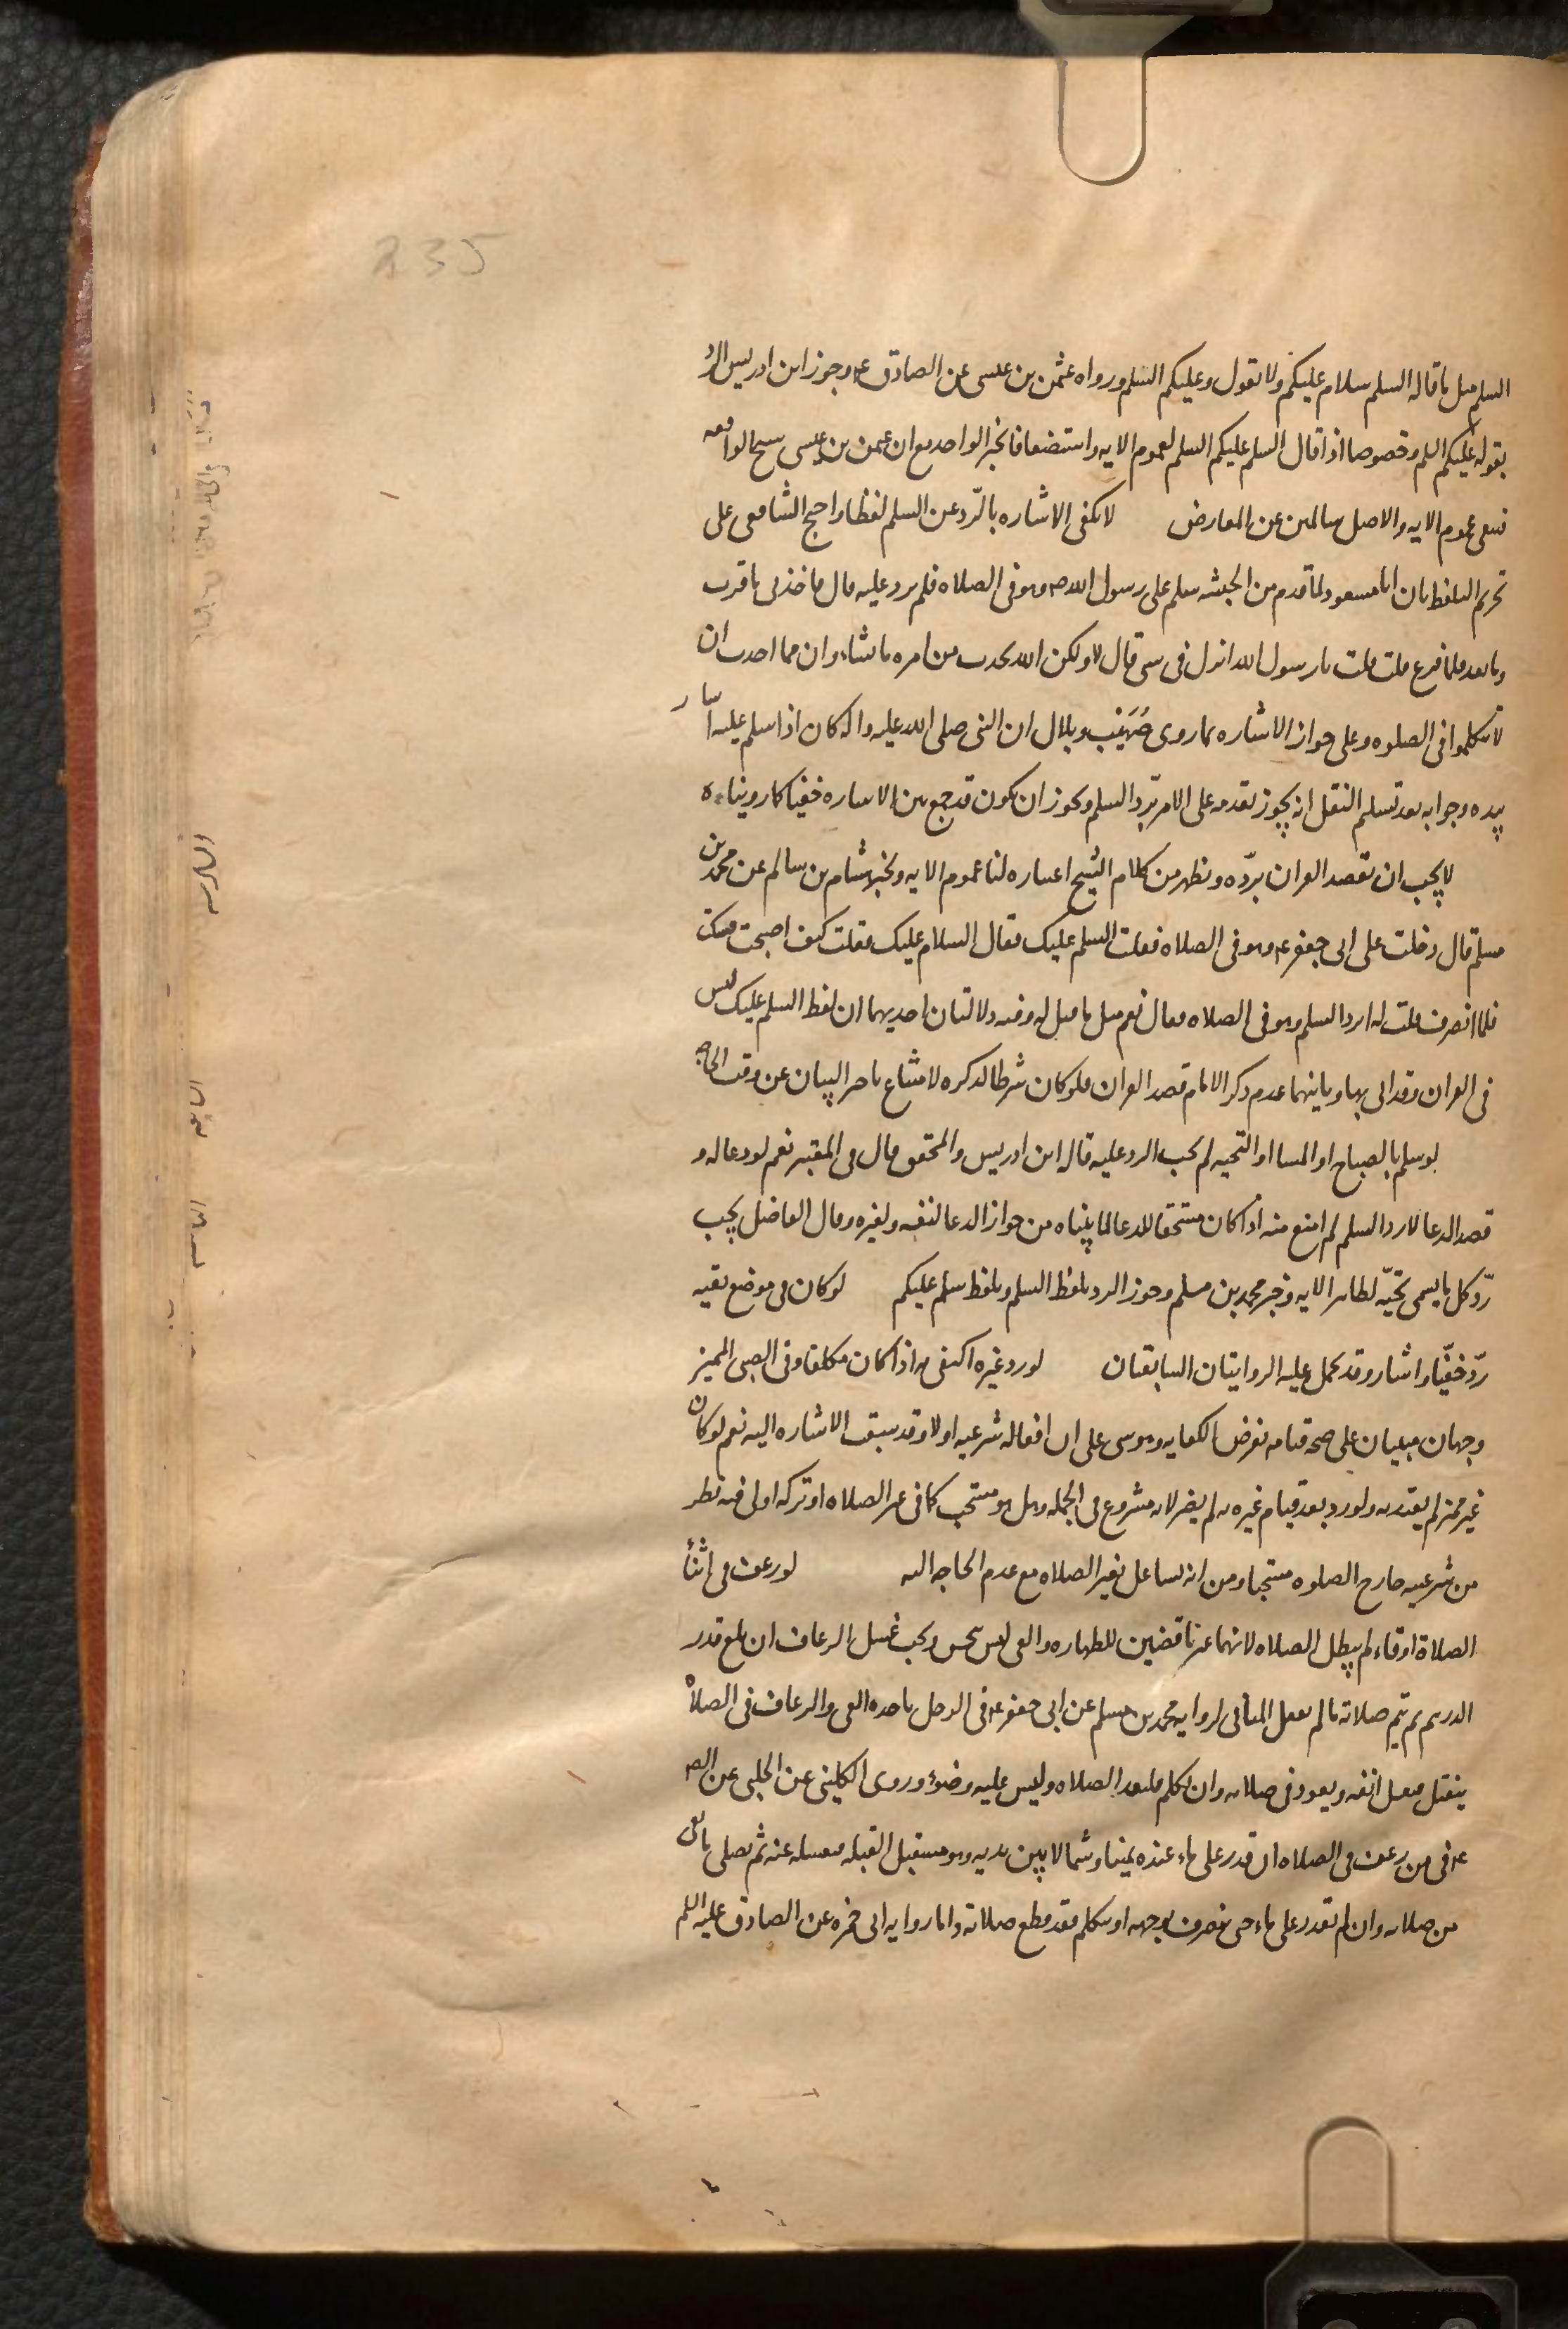 235
السلم مثل ما قاله السلم سلام عليكم ولا يقول وعليكم السلم ورواه عثمن بن عيسى عن الصادق ع وجوز ابن ادريس الرد
بقوله عليكم السلم وخصوصا اذا قال السلم عليكم السلم لعموم الايه واستضعافا لخبر الواحد مع ان عثمن بن عيسى شيخ الواقفه
فيبقى عموم الايه والاصل سالمين عن المعارض لا يكفى الاشاره بالرّد عن السلم لفظا واحتج الشافعى على
تحريم اللفظ بان ابا مسعود لما قدم من الحبشه سلم على رسول الله ص وهو فى الصلاه فلم يرد عليه قال فاخذنى ما قرب
وما بعد فلما فرغ قلت يا رسول الله انزل فى شى قال لا ولكن الله يحدث من امره ما شاء وان مما احدث ان
لا تتكلموا فى الصلوه وعلى جواز الاشاره بما روى صُهَيب وبلال ان النبى صلى الله عليه واله كان اذا سلم عليه اشار
بيده وجوابه بعد تسلم النقل انه يجوز تقدمه على الامر بّرد السلم ويجوز ان يكون قد جمع بين الاشاره خفيا كما رويناه
لا يجب ان يقصد القران بردّه ويظهر من كلام الشيخ اعتباره لنا عموم الايه وخبر هشام بن سالم عن محمد بن
مسلم قال دخلت على ابى جعفر ع وهو فى الصلاه فقلت السلم عليك فقال السلام عليك فقلت كيف اصبحت فسكت
فلما انصرف قلت له ايرد السلم وهو فى الصلاه فقال نعم مثل ما قيل له وفيه دلالتان احديهما ان لفظ السلم عليك ليس
فى القران وقد اتى بها وثانيهما عدم ذكر الامام قصد القران فلو كان شرطا لذكره لامتناع تاخر البيان عن وقت الحاجه
لو سلم بالصباح او المسا او التحيه لم يجب الرد عليه قاله ابن ادريس والمحقق قال فى المعتبر نعم لو دعا له و
قصد الدعا لا رد السلم لم امنع منه اذا كان مستحقا للدعا لما بيناه من جواز الدعا لنفسه ولغيره وقال الفاضل يجب
رّد كل ما يسمى تحيّه لظاهر الايه وخبر محمد بن مسلم وجوز الرد بلفظ السلم وبلفظ سلم عليكم لو كان فى موضع تقيه
ردّ خفيّا واشار وقد تحمل عليه الروايتان السابقتان لو رد غيره اكتفى به اذا كان مكلفا وفى الصبى المميز
وجهان مبنيان على صحه قيامه بفرض الكفايه وهو مبنى على ان افعاله شرعيه اولا وقد سبق الاشاره اليه نعم لو كان
غير مميز لم يعتد به ولو رد بعد قيام غيره به لم يضر لانه مشروع فى الجمله وهل هو مستحب كما فى غير الصلاه او تركه اولى فيه نظر
من شرعيته خارج الصلوه مستحبا ومن انه تشاغل بغير الصلاه مع عدم الحاجه اليه لو رعف فى اثنأ
الصلاة او قاء لم يبطل الصلاه لانهما غير ناقضين للطهاره والقى ليس بنجس ويجب غسل الرعاف ان بلغ قدر
الدرهم ثم يتم صلاته ما لم يفعل المنافى لروايه محمد بن مسلم عن ابى جعفر ع فى الرجل ياخذه القى والرعاف فى الصلاه
ينفتل فيغسل انفه ويعود فى صلاته وان تكلم فليعد الصلاه وليس عليه وضوء وروى الكلينى عن الحلبى عن الص
ع فى من رعف فى الصلاه ان قدر على ماء عنده يمينا وشمالا بين يديه وهو مستقبل القبله فيغسله عنه ثم يصلى ما بقى
من صلاته وان لم يقدر على ماء حى ينصرف بوجهه او يتكلم فقد قطع صلاته واما روايه ابى حمزه عن الصادق عليه السلم